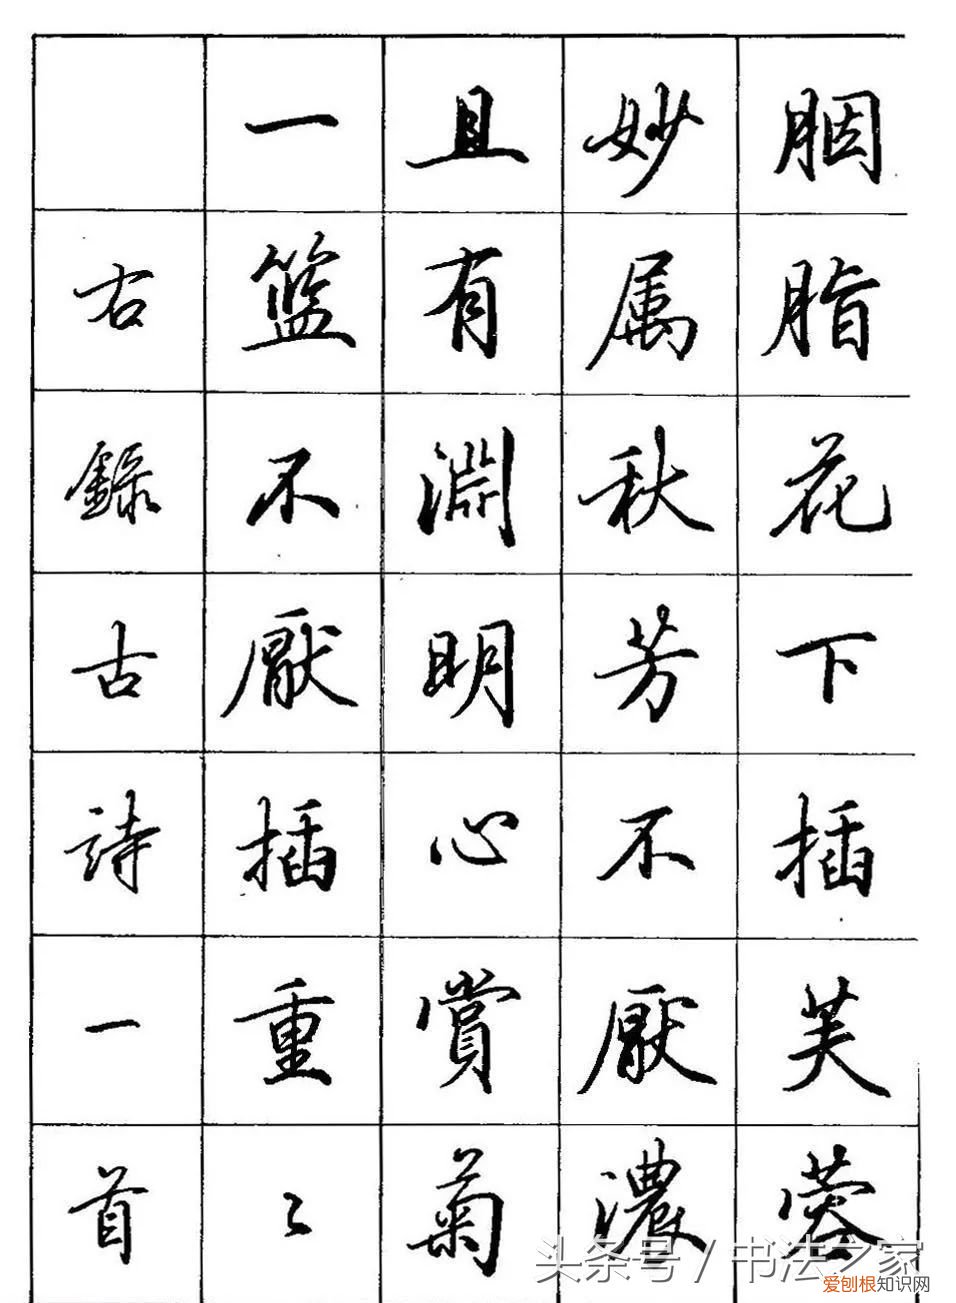 胭脂花下插芙蓉
妙属秋芳不厭濃
且有淵明心賞菊
一籃不厭插重〻
右錄古詩一首
头条号 / 书法之家
爱刨根知识网